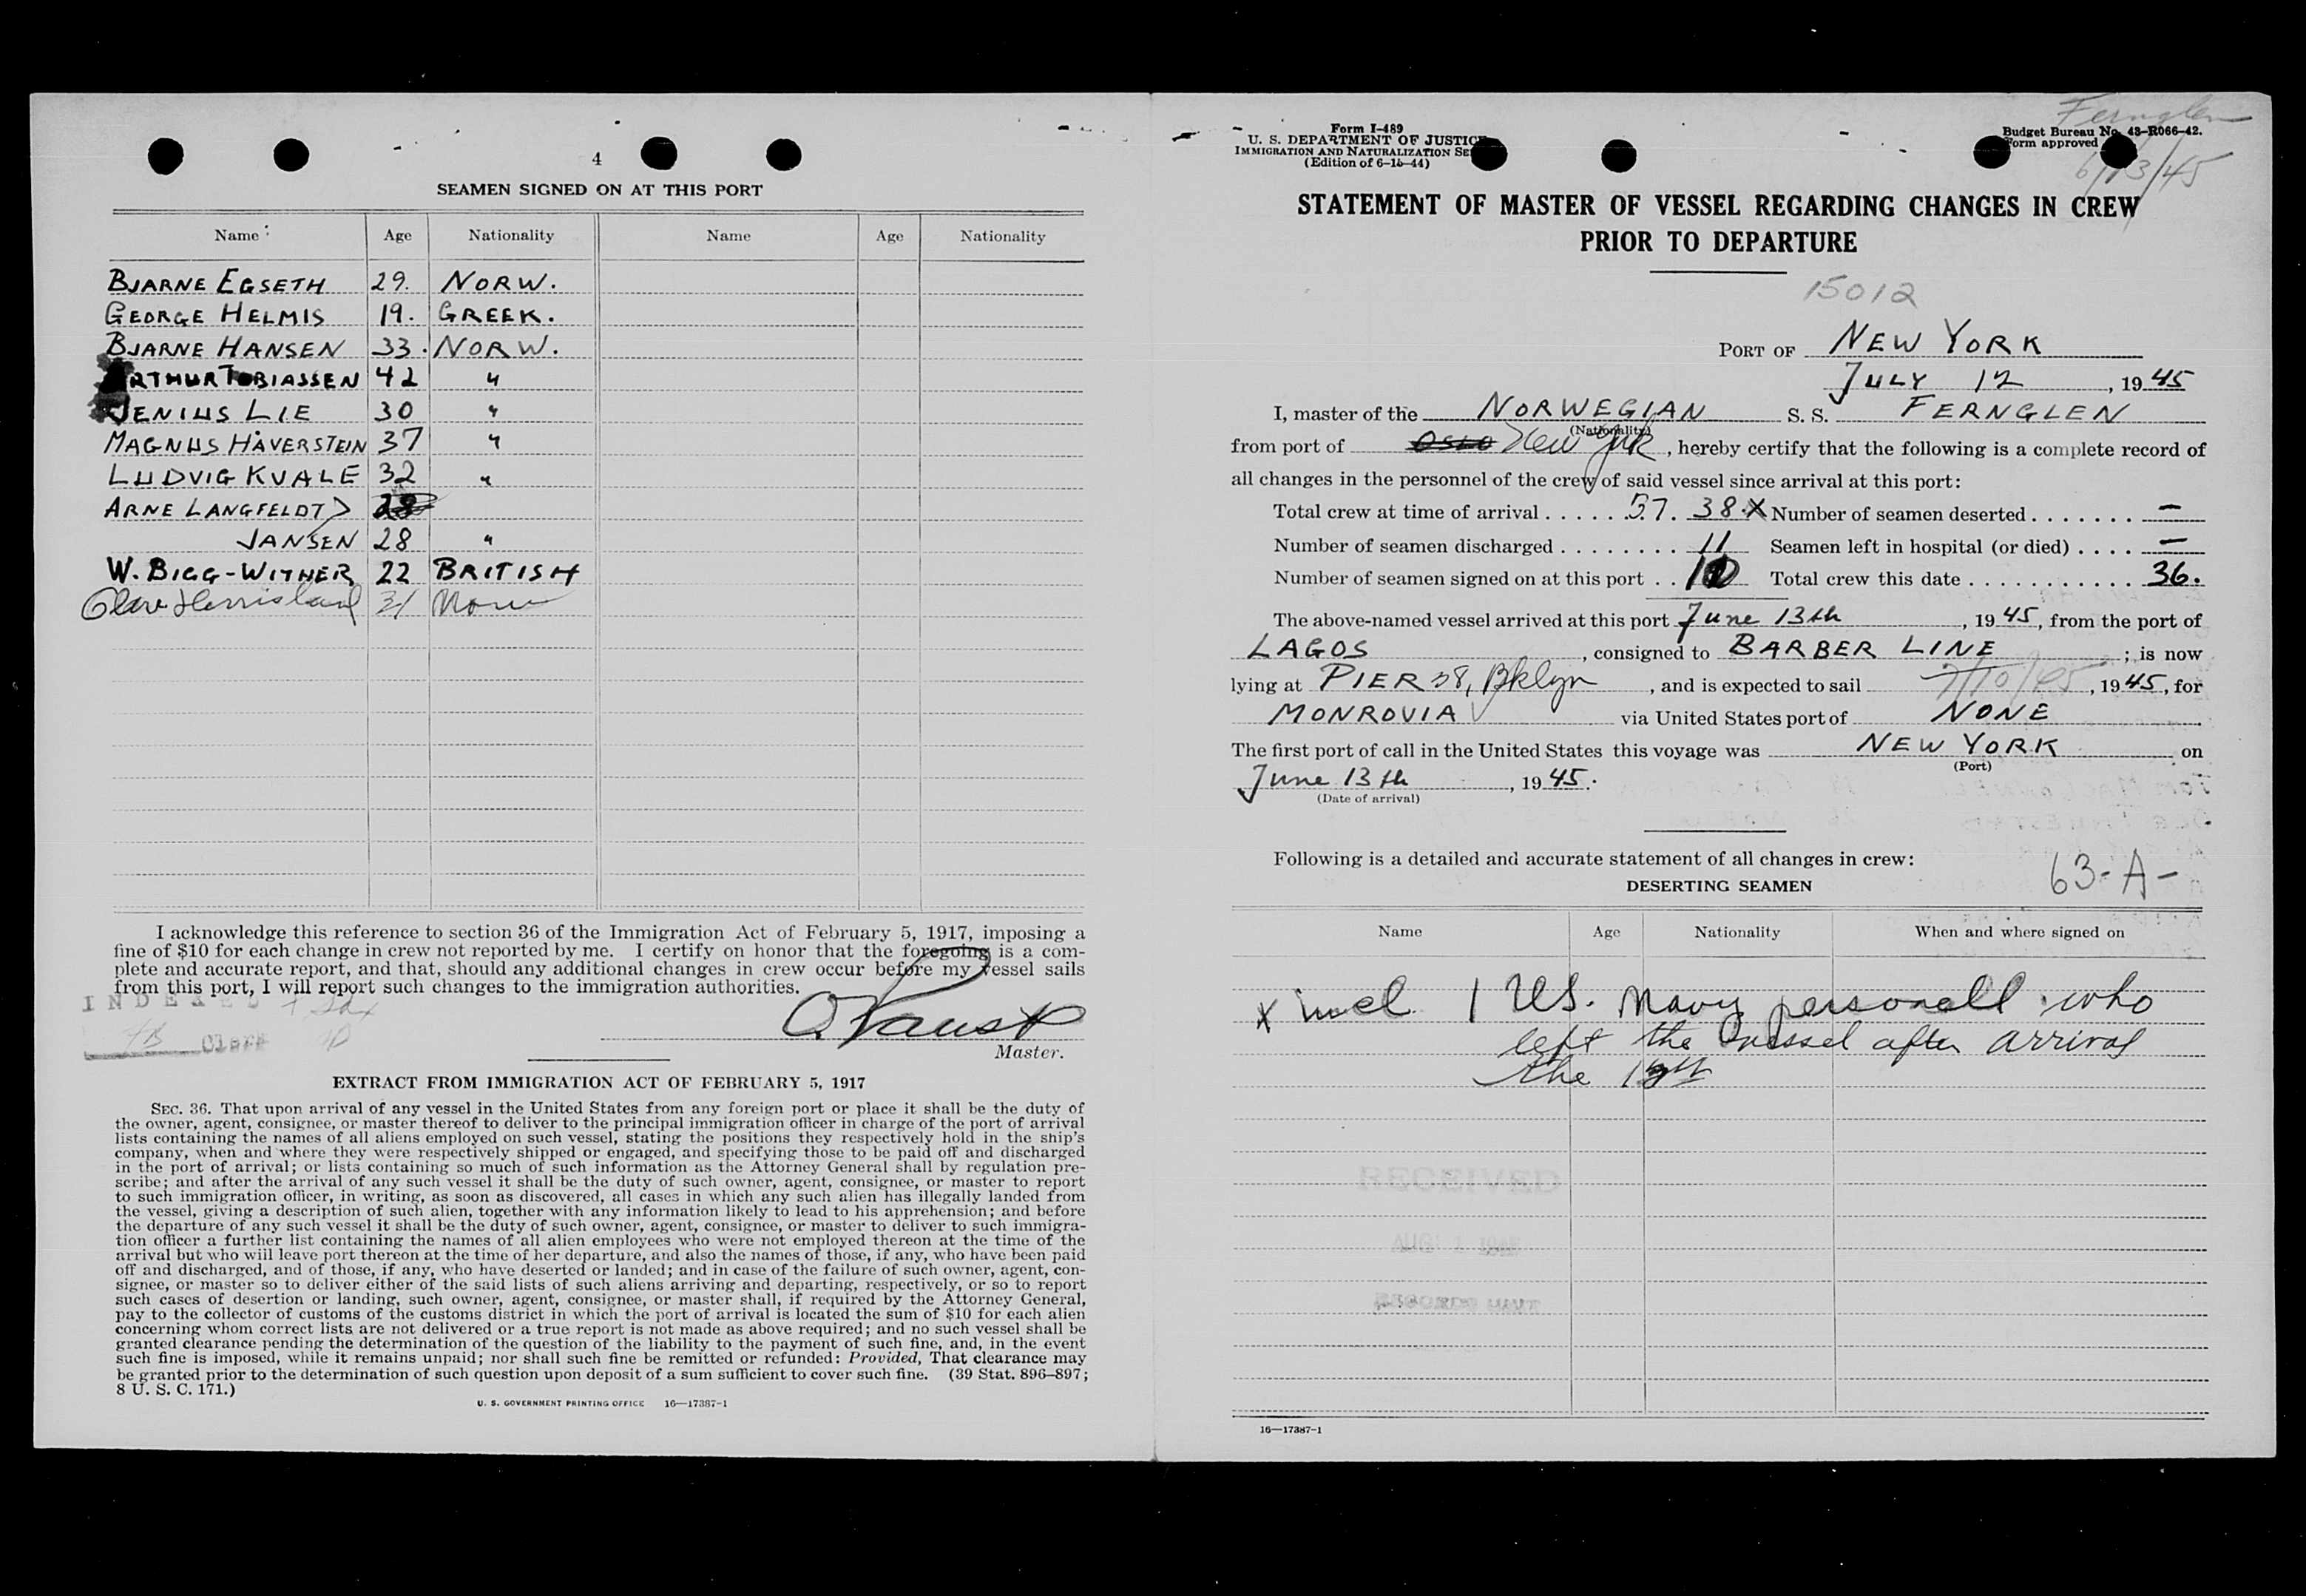 4
SEAMEN SIGNED ON AT THIS PORT
Name Age Nationality Name Age Nationality
BJARNE EGSETH 29. NORW.
GEORGE HELMIS 19. GREEK.
BJARNE HANSEN 33. NORW.
ARTHUR TOBIASSEN 42 "
JENIUS LIE 30 "
MAGNUS HÅVERSTEIN 37 "
LUDVIG KVALE 32 "
ARNE LANGFELDT
JANSEN 28 "
W. BIGG-WITHER 22 BRITISH
31 Norw
I acknowledge this reference to section 36 of the Immigration Act of February 5, 1917, imposing a
fine of $10 for each change in crew not reported by me. I certify on honor that the foregoing is a com-
plete and accurate report, and that, should any additional changes in crew occur before my vessel sails
from this port, I will report such changes to the immigration authorities.
INDEXED
Clerk
Master.
EXTRACT FROM IMMIGRATION ACT OF FEBRUARY 5, 1917
SEC. 36. That upon arrival of any vessel in the United States from any foreign port or place it shall be the duty of
the owner, agent, consignee, or master thereof to deliver to the principal immigration officer in charge of the port of arrival
lists containing the names of all aliens employed on such vessel, stating the positions they respectively hold in the ship's
company, when and where they were respectively shipped or engaged, and specifying those to be paid off and discharged
in the port of arrival; or lists containing so much of such information as the Attorney General shall by regulation pre-
scribe; and after the arrival of any such vessel it shall be the duty of such owner, agent, consignee, or master to report
to such immigration officer, in writing, as soon as discovered, all cases in which any such alien has illegally landed from
the vessel, giving a description of such alien, together with any information likely to lead to his apprehension; and before
the departure of any such vessel it shall be the duty of such owner, agent, consignee, or master to deliver to such immigra-
tion officer a further list containing the names of all alien employees who were not employed thereon at the time of the
arrival but who will leave port thereon at the time of her departure, and also the names of those, if any, who have been paid
off and discharged, and of those, if any, who have deserted or landed; and in case of the failure of such owner, agent, con-
signee, or master so to deliver either of the said lists of such aliens arriving and departing, respectively, or so to report
such cases of desertion or landing, such owner, agent, consignee, or master shall, if required by the Attorney General,
pay to the collector of customs of the customs district in which the port of arrival is located the sum of $10 for each alien
concerning whom correct lists are not delivered or a true report is not made as above required; and no such vessel shall be
granted clearance pending the determination of the question of the liability to the payment of such fine, and, in the event
such fine is imposed, while it remains unpaid; nor shall such fine be remitted or refunded: Provided, That clearance may
be granted prior to the determination of such question upon deposit of a sum sufficient to cover such fine. (39 Stat. 896–897;
8 U. S. C. 171.)
U. S. GOVERNMENT PRINTING OFFICE 16—17387-1
Fernglen
6/13/45
Form I-489
U. S. DEPARTMENT OF JUSTICE
IMMIGRATION AND NATURALIZATION SE
(Edition of 6-15-44)
Budget Bureau No. 43-R066-42.
Form approved
STATEMENT OF MASTER OF VESSEL REGARDING CHANGES IN CREW
PRIOR TO DEPARTURE
15012
PORT OF NEW YORK
JULY 12, 1945
I, master of the NORWEGIAN S. S. FERNGLEN
(Nationality)
from port of OSLO New York, hereby certify that the following is a complete record of
all changes in the personnel of the crew of said vessel since arrival at this port:
Total crew at time of arrival 37. 38. X Number of seamen deserted —
Number of seamen discharged 11 Seamen left in hospital (or died) —
Number of seamen signed on at this port 10 Total crew this date 36.
The above-named vessel arrived at this port June 13th, 1945, from the port of
LAGOS, consigned to BARBER LINE; is now
lying at PIER 38, Bklyn, and is expected to sail 7/10/45, 1945, for
MONROVIA via United States port of NONE
The first port of call in the United States this voyage was NEW YORK on
(Port)
June 13th, 1945.
(Date of arrival)
Following is a detailed and accurate statement of all changes in crew:
63-A-
DESERTING SEAMEN
Name Age Nationality When and where signed on
x incl. 1 US. Navy personell who
left the vessel after arrival
the
RECEIVED
AUG 1 1945
RECORDS UNIT
16—17387-1